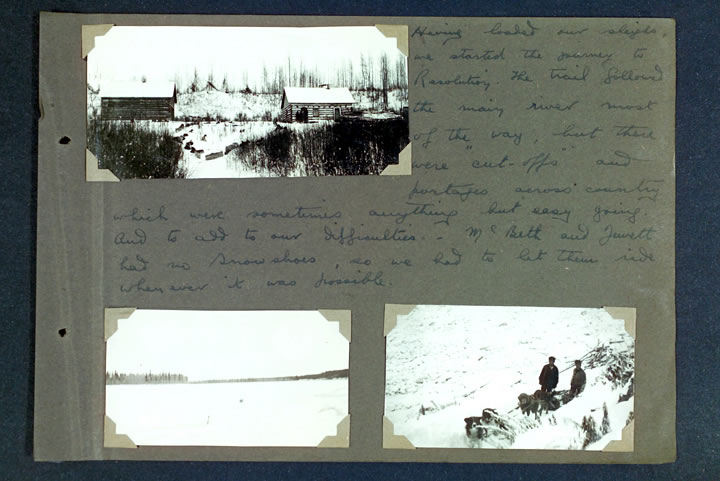 Having loaded our sleighs,
we started the journey to
Resolution. The trail followed
the main river most
of the way, but there
were "cut-offs" and
portages across country
which were sometimes anything but easy going.
And to add to our difficulties - McBeth and Jewett
had no snowshoes, so we had to let them ride
whenever it was possible.